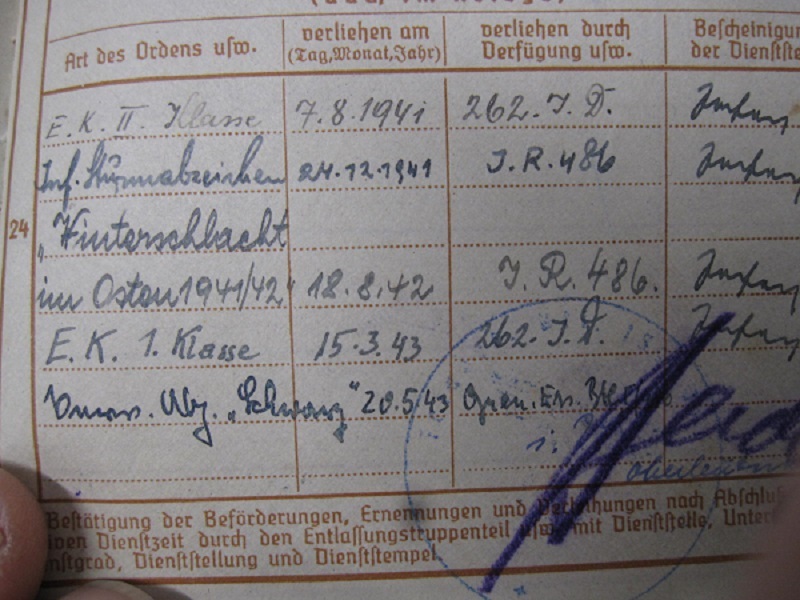 Art des Ordens usw. verliehen am (Tag, Monat, Jahr) verliehen durch Verfügung usw. Bescheinigung der Dienstste
E. K. II. Klasse 7.8.1941 262. J. D.
Inf. Sturmabzeichen 24.12.1941 J.R. 486
24
„Winterschlacht
im Osten 1941/42" 18.8.42 J. R. 486.
E. K. 1. Klasse 15.3.43 262. J. D.
Verw. Abz. „Schwarz" 20.5.43 Gren. Ers.
Bestätigung der Beförderungen, Ernennungen und Verleihungen nach Abschluß
iven Dienstzeit durch den Entlassungstruppenteil usw. mit Dienststelle, Unter
nstgrad, Dienststellung und Dienststempel